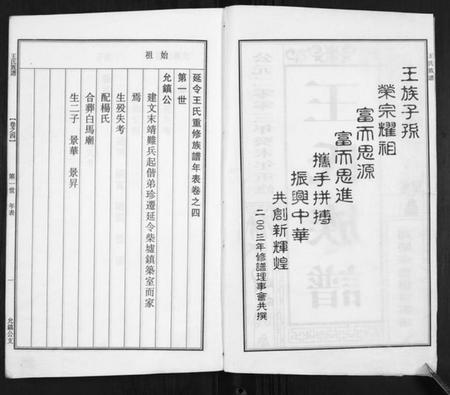 王氏族譜
王族子孫
榮宗耀祖
富而思源
富而思進
攜手拼搏
振興中華
共創新輝煌
二00三年修譜理事會共撰
延令王氏重修族譜年表卷之四
第一世
始祖
允鎮公
建文末靖難兵起偕弟珍遷延令柴墟鎮築室而家
焉
生歿失考
配楊氏
合葬白馬廟
生二子 景華 景昇
王氏族譜
卷之四
第一世 年表
一
允鎮公支